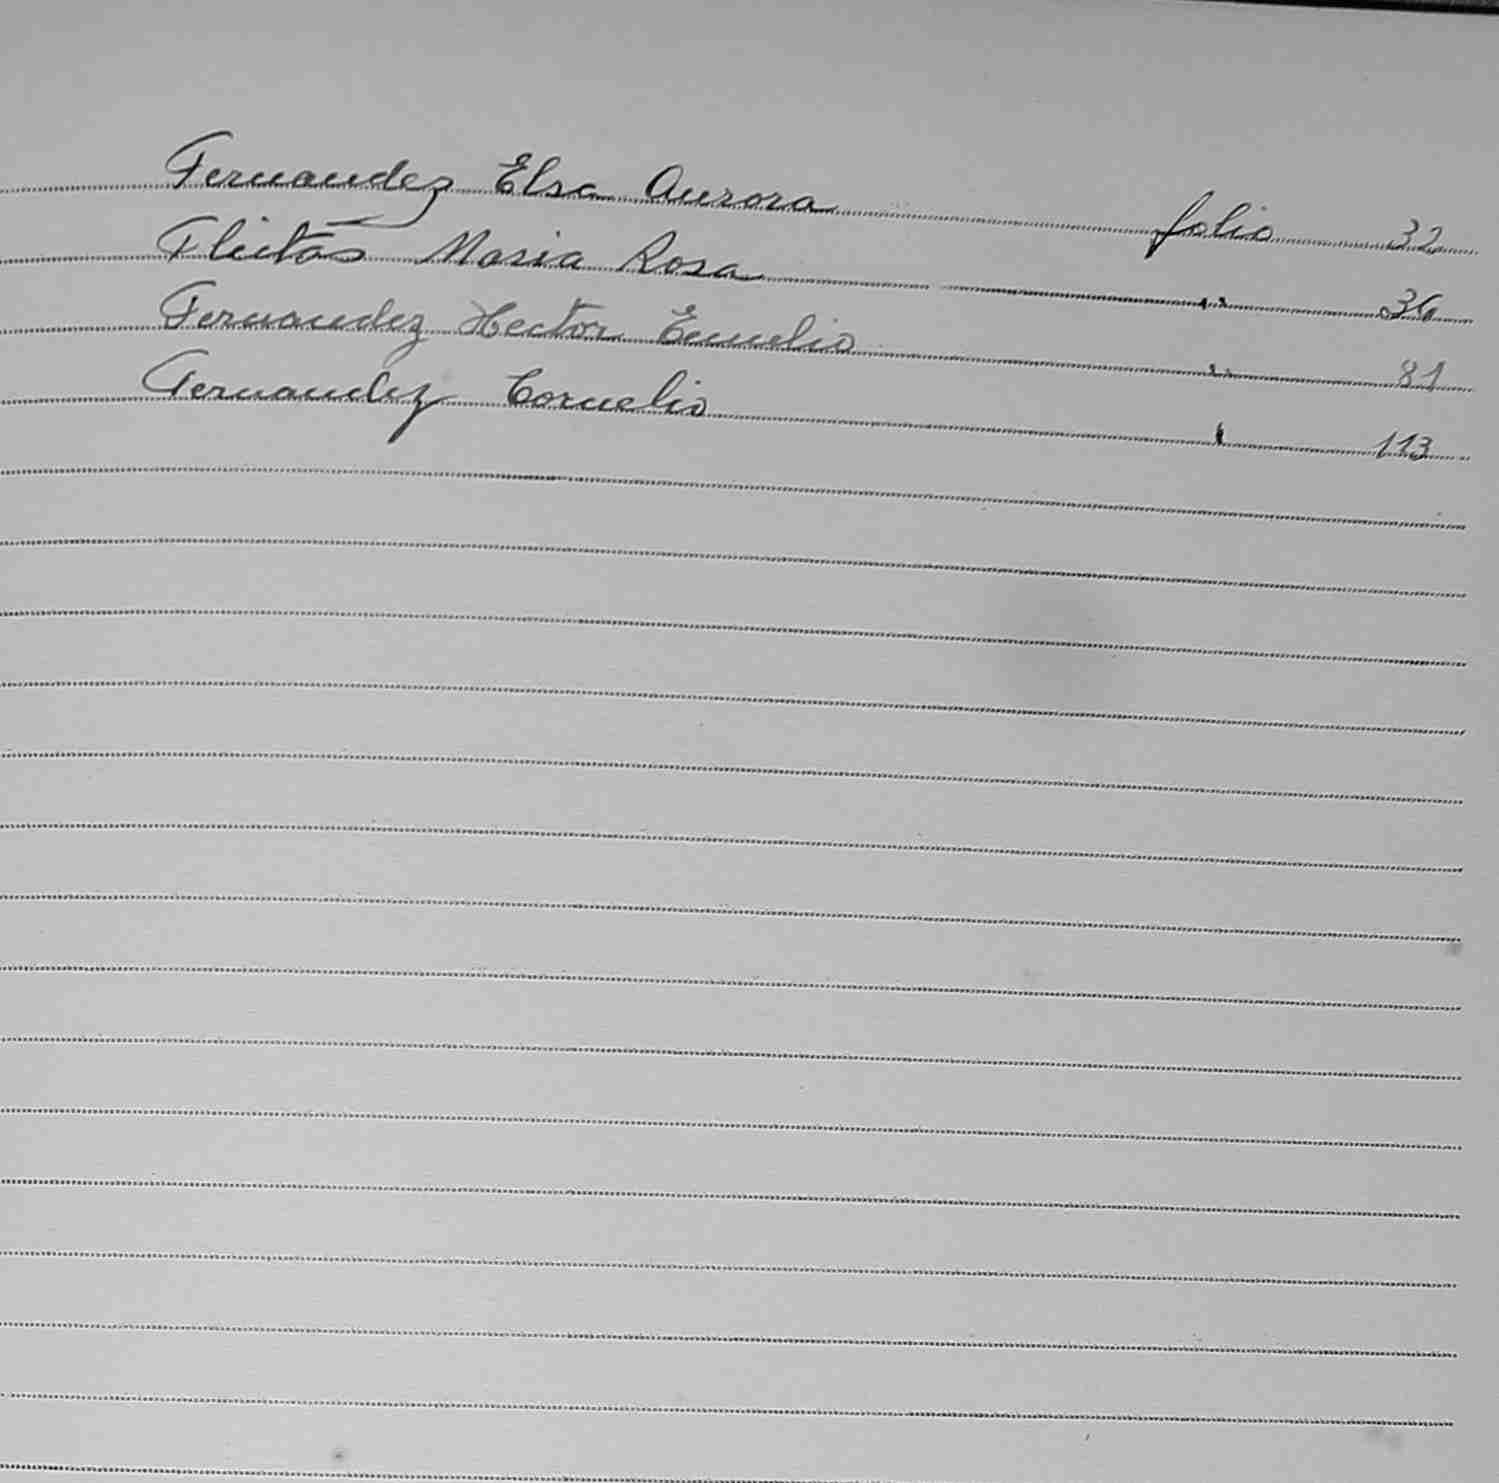 Fernandez Elsa Aurora folio 32
Fleitas Maria Rosa " 36
Fernandez Hector Ermelio " 81
Fernandez Cornelio " 113